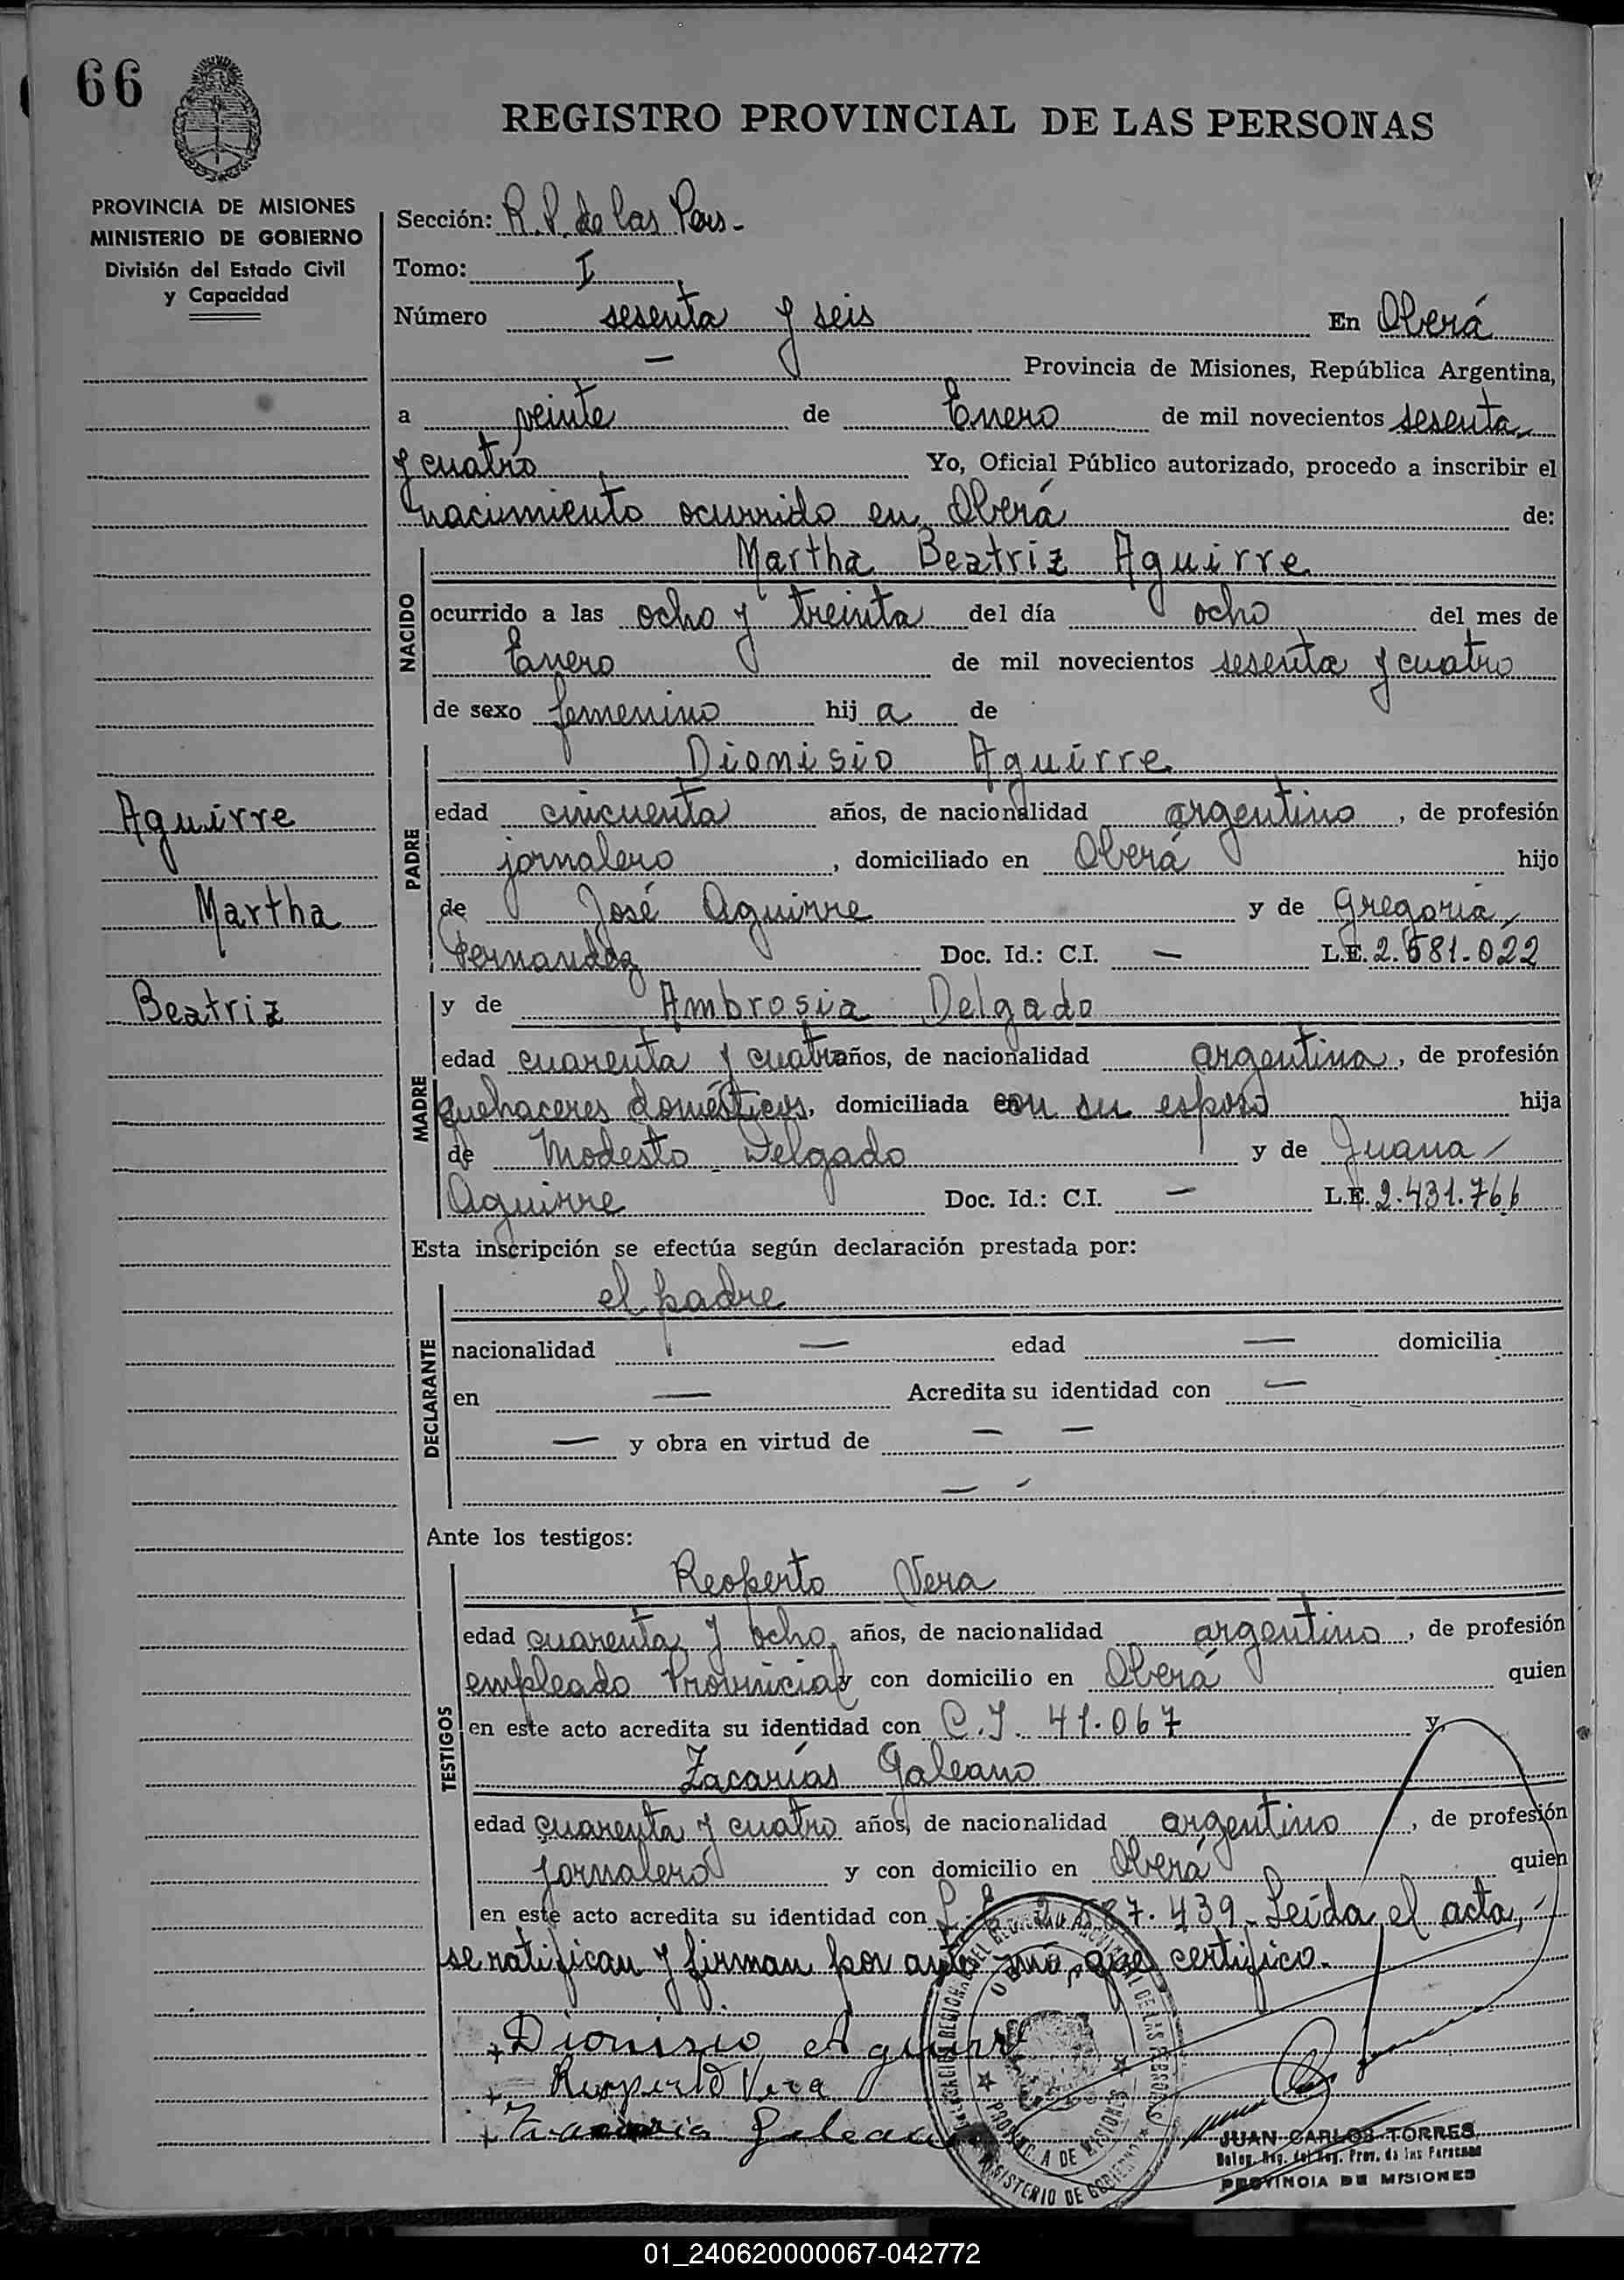 66
REGISTRO PROVINCIAL DE LAS PERSONAS
PROVINCIA DE MISIONES
MINISTERIO DE GOBIERNO
División del Estado Civil
y Capacidad
Sección: R. P. de las Pers.-
Tomo: I
Número sesenta y seis En Oberá
— Provincia de Misiones, República Argentina,
a veinte de Enero de mil novecientos sesenta
y cuatro Yo, Oficial Público autorizado, procedo a inscribir el
nacimiento ocurrido en Oberá de:
NACIDO
Martha Beatriz Aguirre
ocurrido a las ocho y treinta del día ocho del mes de
Enero de mil novecientos sesenta y cuatro
de sexo femenino hij a de
PADRE
Dionisio Aguirre
edad cincuenta años, de nacionalidad argentino, de profesión
jornalero, domiciliado en Oberá hijo
de José Aguirre y de Gregoria
Fernandez Doc. Id.: C.I. — L.E. 2.581.022
Aguirre
Martha
Beatriz
MADRE
y de Ambrosia Delgado
edad cuarenta y cuatro años, de nacionalidad argentina, de profesión
quehaceres domésticos, domiciliada con su esposo hija
de Modesto Delgado y de Juana
Aguirre Doc. Id.: C.I. — L.E. 2.431.766
Esta inscripción se efectúa según declaración prestada por:
DECLARANTE
el padre
nacionalidad — edad — domicilia
en — Acredita su identidad con —
— y obra en virtud de — —
—
Ante los testigos:
TESTIGOS
Reoperto Vera
edad cuarenta y ocho años, de nacionalidad argentino, de profesión
empleado Provincial y con domicilio en Oberá quien
en este acto acredita su identidad con C.I. 41.067 y,
Zacarías Galeano
edad cuarenta y cuatro años, de nacionalidad argentino, de profesión
jornalero y con domicilio en Oberá quien
en este acto acredita su identidad con L.E. 7.439.- Leída el acta,
se ratifican y firman por ante mí que certifico.-
+ Dionisio Aguirr
+ Reoperto Vera
+ Galeano
PROVINCIA DE MISIONES
MINISTERIO DE GOBIERNO
JUAN CARLOS TORRES
Deleg. Reg. del Reg. Prov. de las Personas
PROVINCIA DE MISIONES
01_240620000067-042772